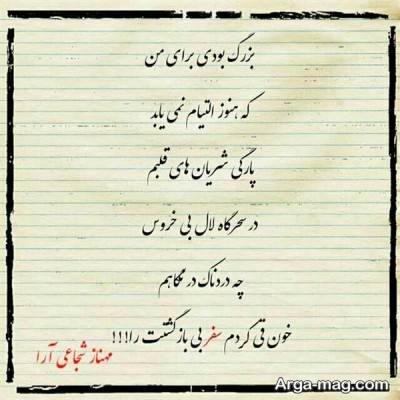 بزرگ بودی برای من
که هنوز التیام نمی یابد
پارگی شریان های قلبم
در سحرگاه لال بی خروس
چه دردناک در مکاهم
خون قی کردم سفر بی بازگشتت را!!!
مهناز شجاعی آرا
Arga-mag.com